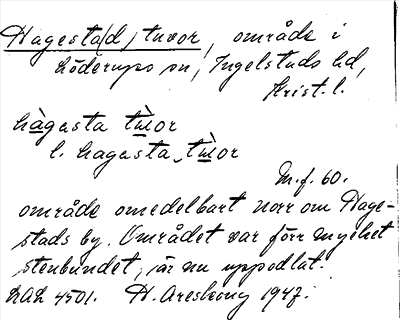 Hagesta(d) tuvor, område i
Löderups sn, Ingelstads hd,
Krist. l.
hàgasta tùor
l. hagasta tùor
M.f. 60.
område omedelbart norr om Hage-
stads by. Området var förr mycket
stenbundet, är nu uppodlat.
LAL 4501. H. Areskoug 1947.